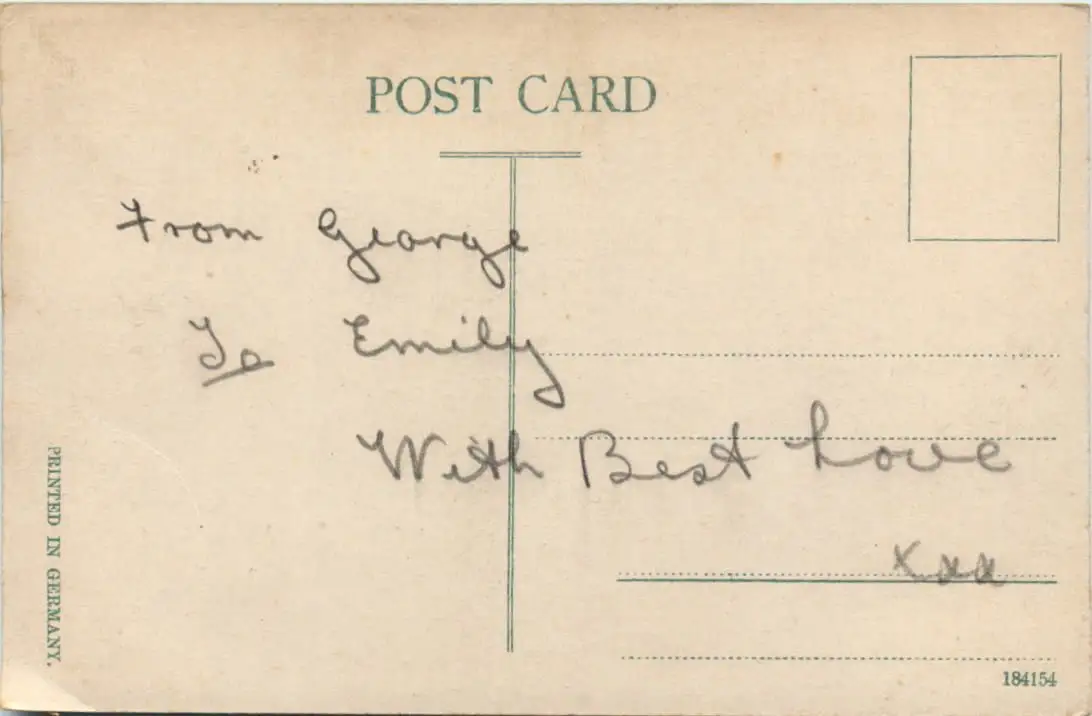 POST CARD
From George
To Emily
With Best Love
xxx
PRINTED IN GERMANY.
184154